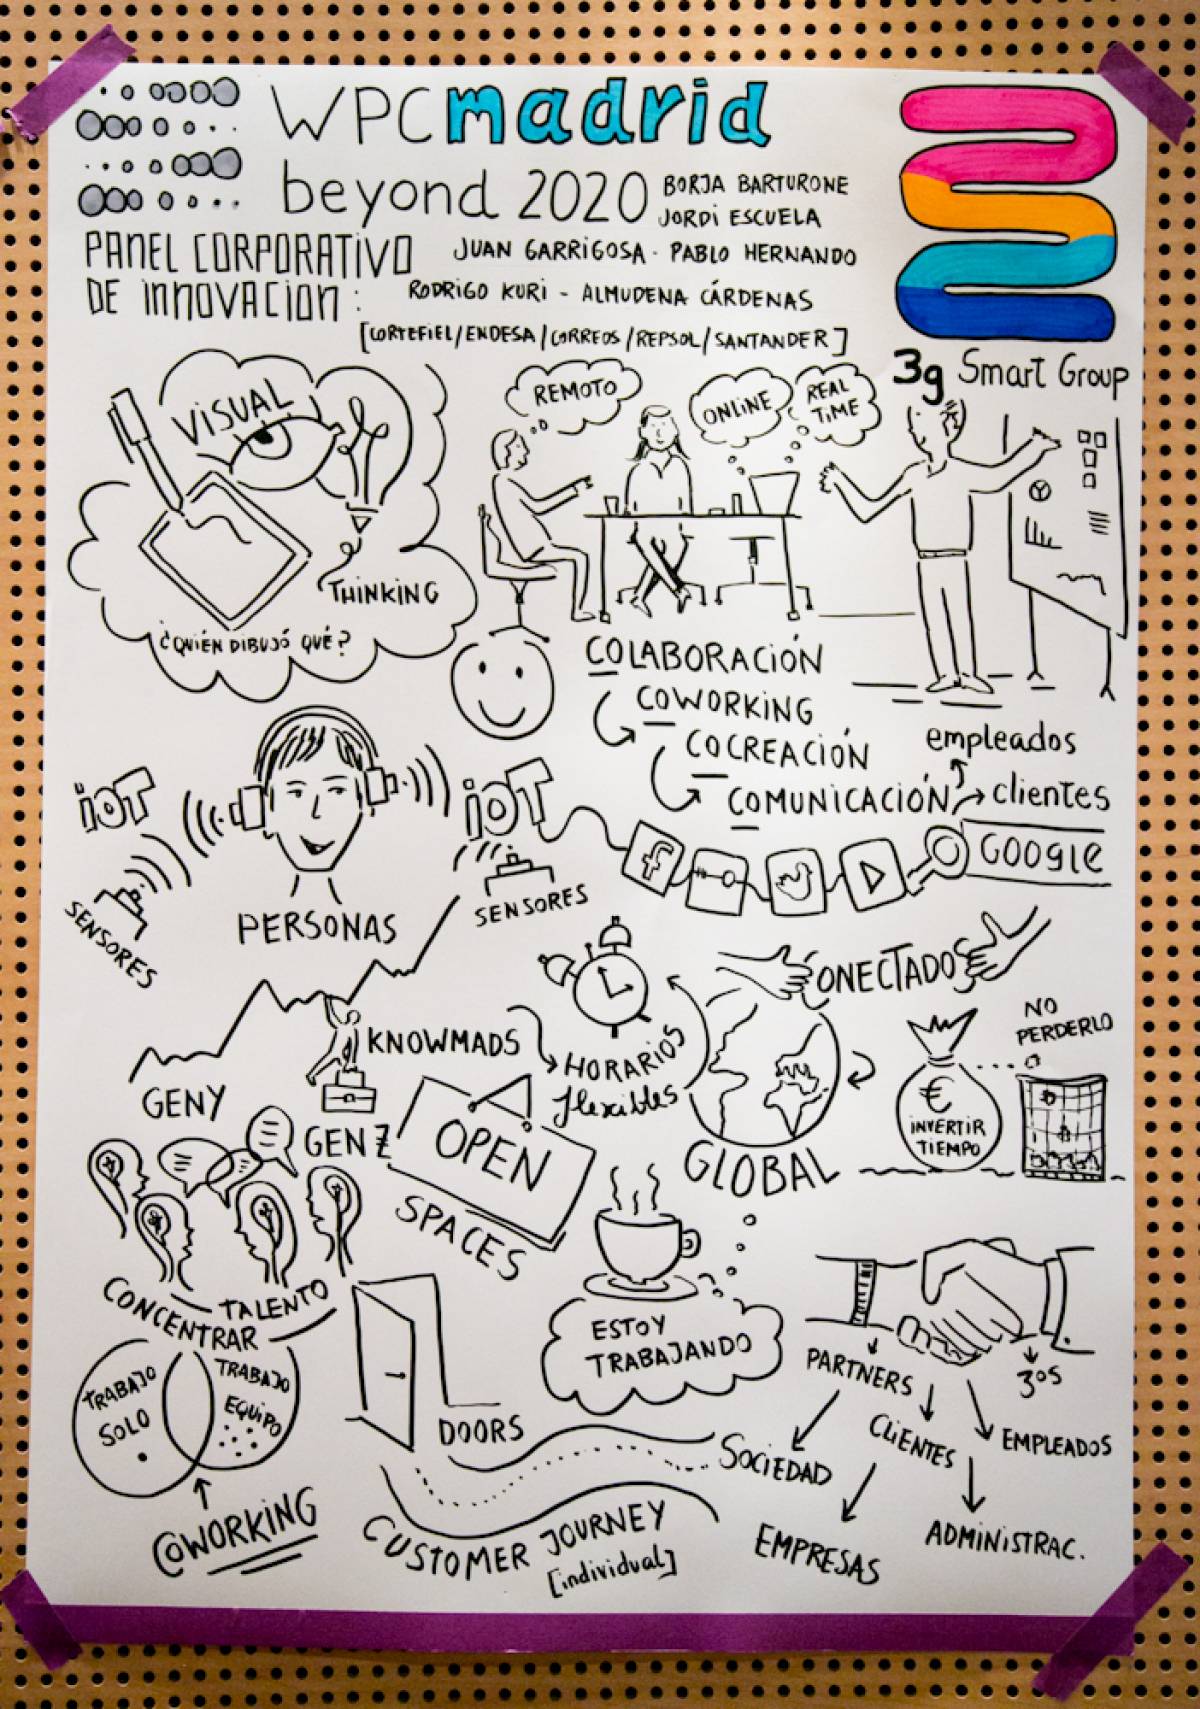 WPCmadrid
beyond 2020
BORJA BARTURONE
JORDI ESCUELA
PANEL CORPORATIVO
DE INNOVACION:
JUAN GARRIGOSA - PABLO HERNANDO
RODRIGO KURI - ALMUDENA CÁRDENAS
[CORTEFIEL/ENDESA/CORREOS/REPSOL/SANTANDER]
3g Smart Group
VISUAL
THINKING
¿QUIÉN DIBUJÓ QUÉ?
REMOTO
ONLINE
REAL
TIME
COLABORACIÓN
COWORKING
COCREACIÓN
COMUNICACIÓN
empleados
clientes
iOT
iOT
SENSORES
PERSONAS
SENSORES
f
GOOGLE
CONECTADOS
KNOWMADS
HORARIOS
flexibles
GLOBAL
NO
PERDERLO
€
INVERTIR
TIEMPO
GENY
GEN Z
OPEN
SPACES
CONCENTRAR
TALENTO
TRABAJO
SOLO
TRABAJO
EQUIPO
@WORKING
DOORS
ESTOY
TRABAJANDO
CUSTOMER JOURNEY
[individual]
PARTNERS
3OS
CLIENTES
EMPLEADOS
SOCIEDAD
EMPRESAS
ADMINISTRAC.